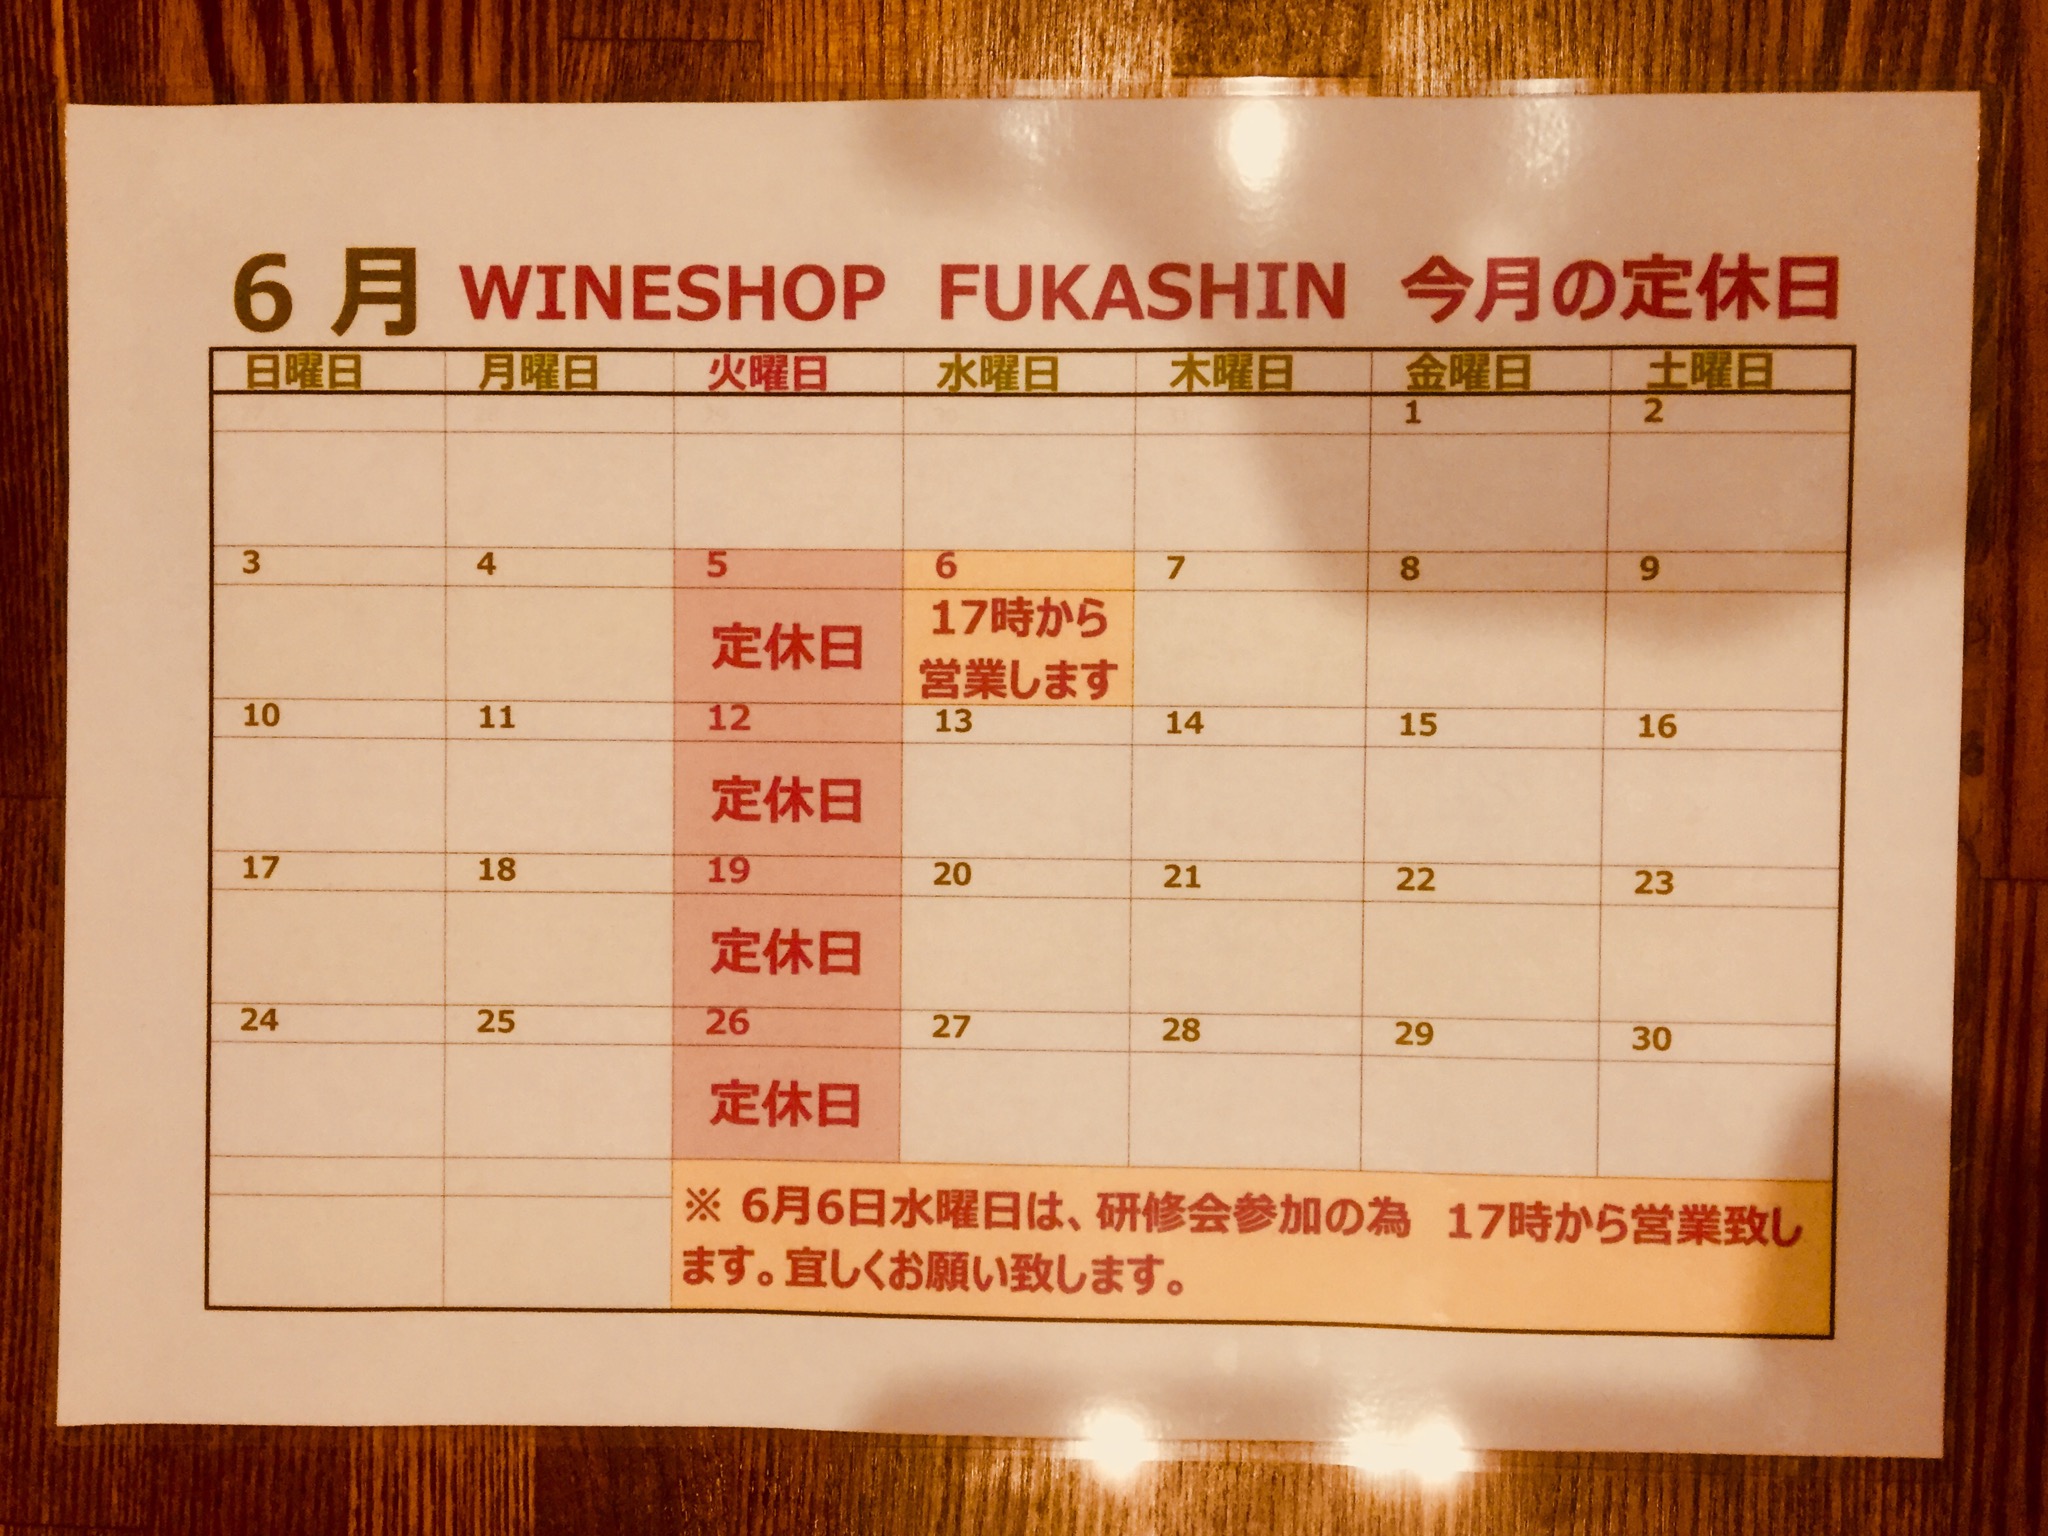 6 月 WINESHOP FUKASHIN 今月の定休日
日曜日 月曜日 火曜日 水曜日 木曜日 金曜日 土曜日
1 2
3 4 5 6 7 8 9
定休日
17時から
営業します
10 11 12 13 14 15 16
定休日
17 18 19 20 21 22 23
定休日
24 25 26 27 28 29 30
定休日
※ 6月6日水曜日は、研修会参加の為 17時から営業致し
ます。宜しくお願い致します。